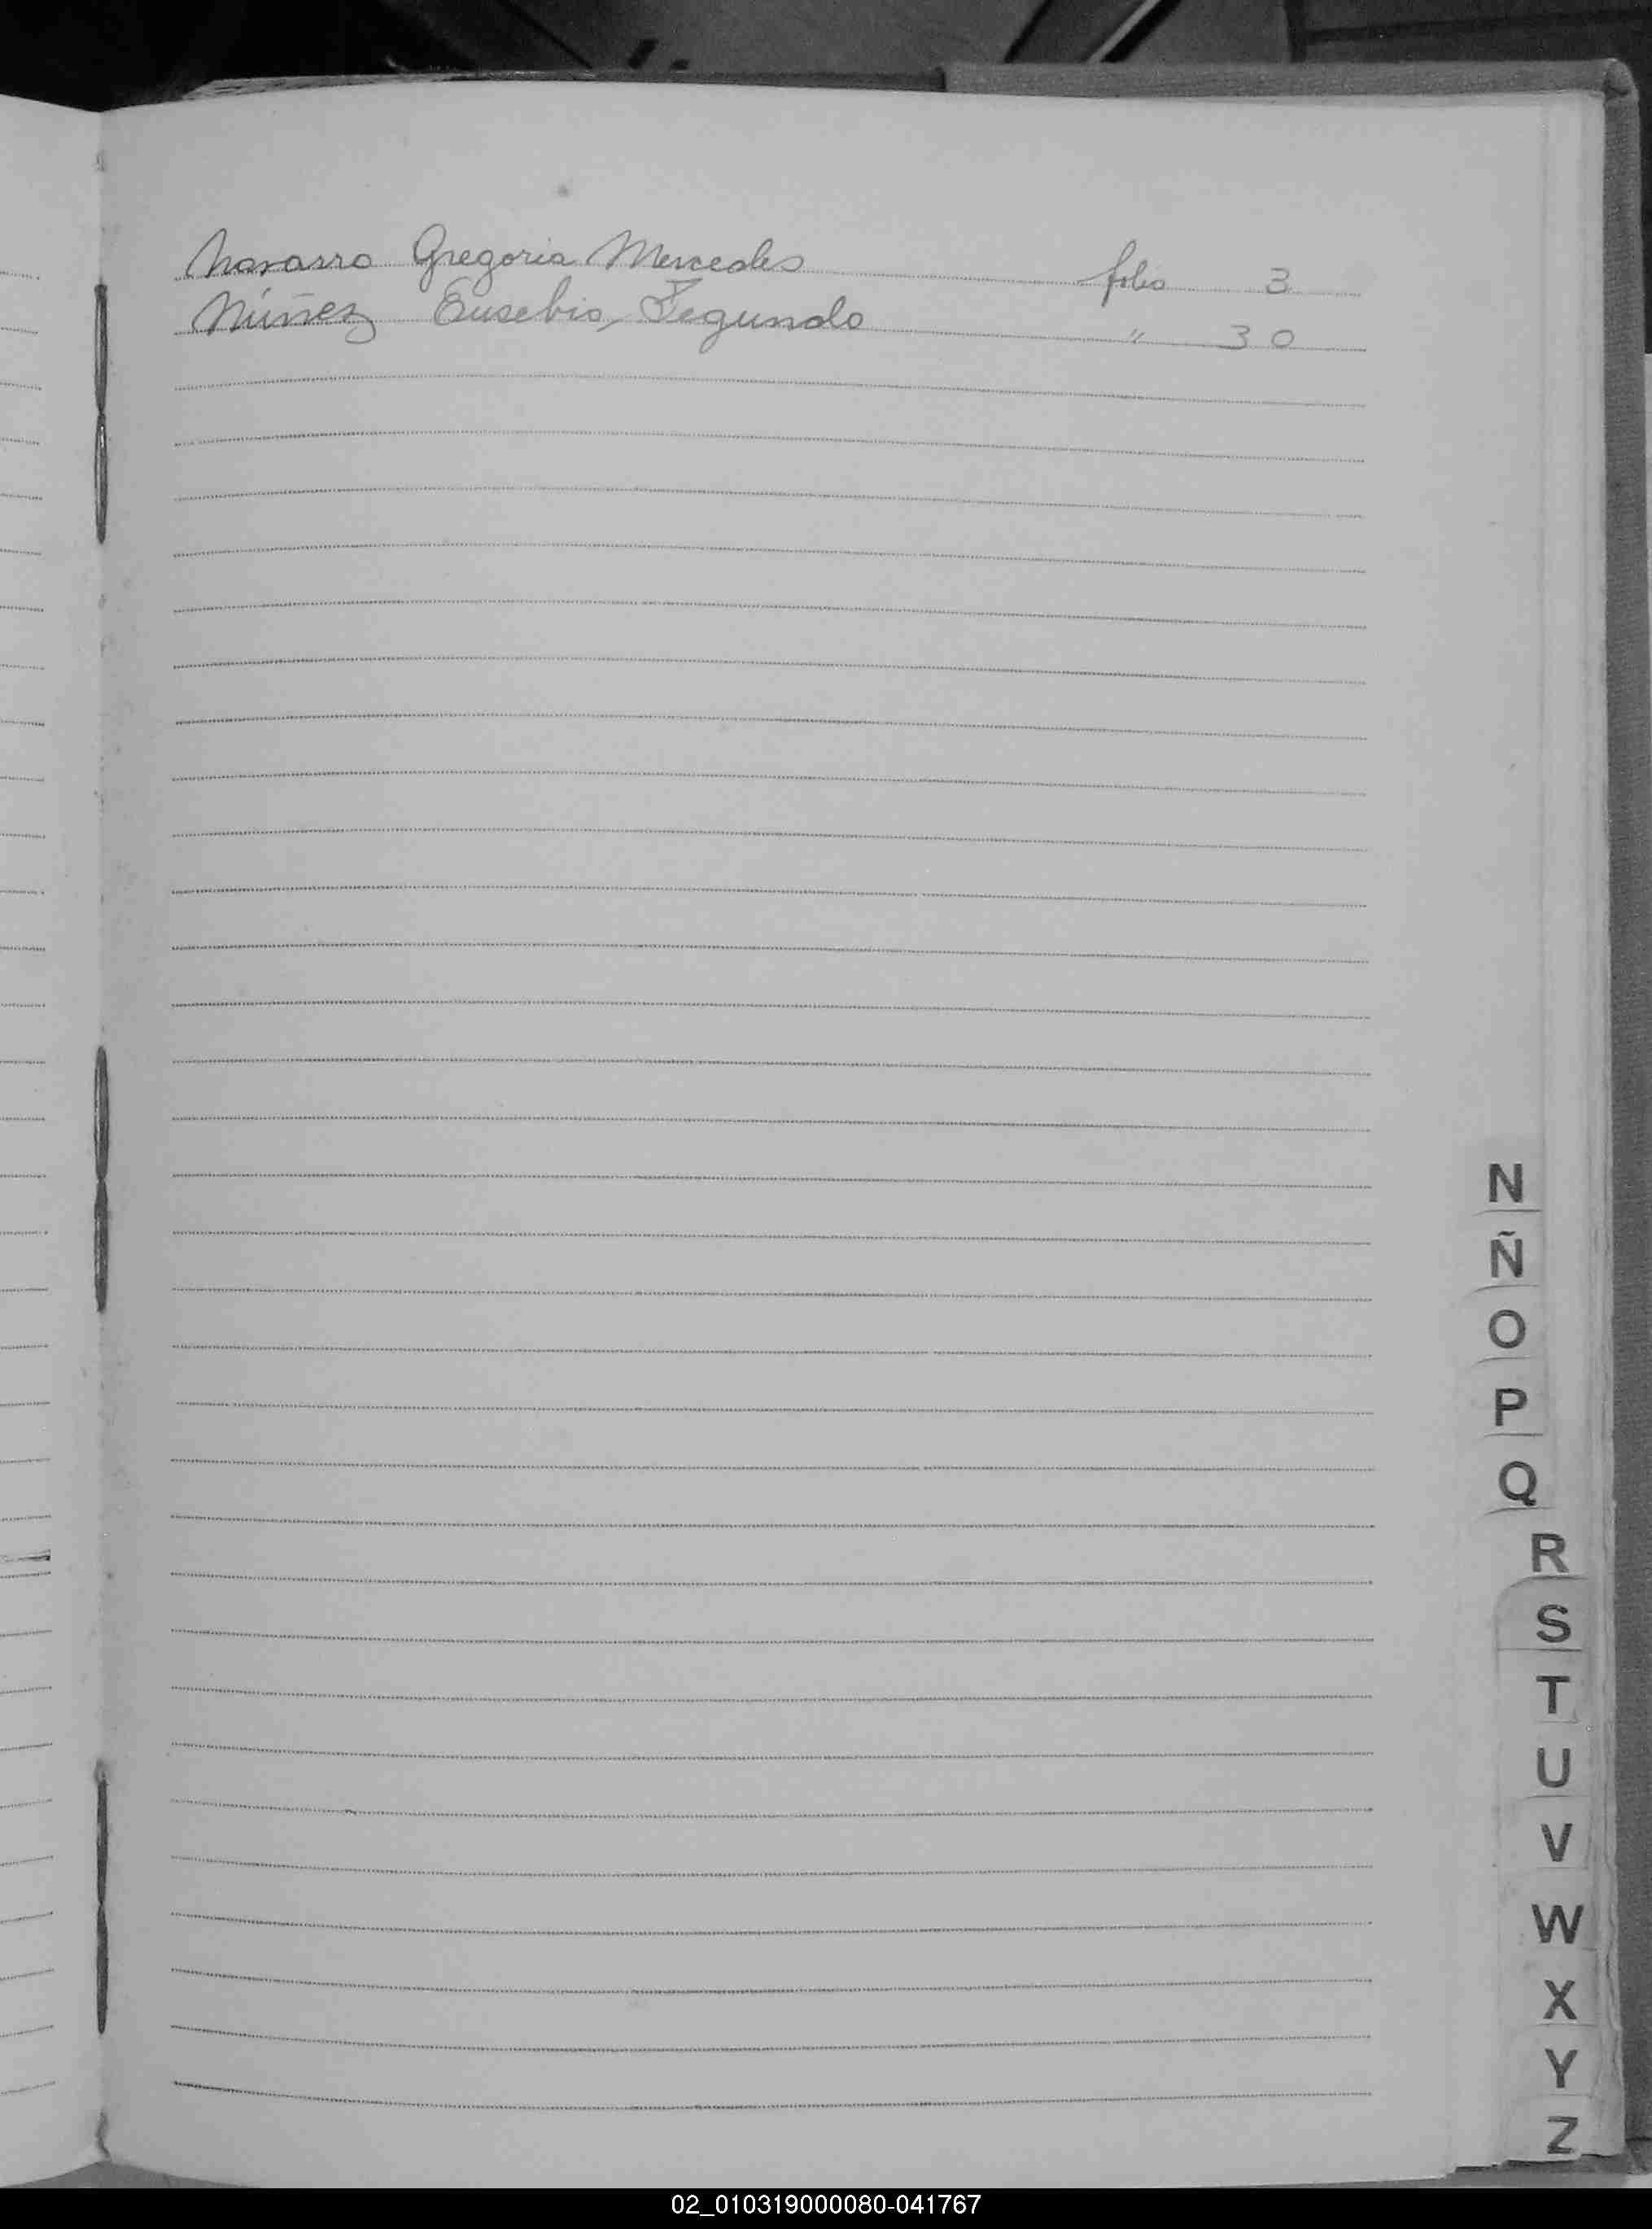 Navarro Gregoria Mercedes folio 3
Núñez Eusebio, Segundo " 30
N
Ñ
O
P
Q
R
S
T
U
V
W
X
Y
Z
02_010319000080-041767